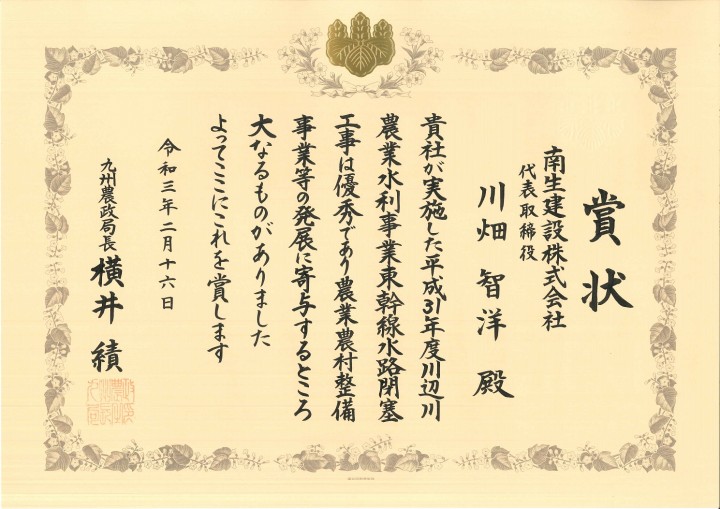 賞状
南生建設株式会社
代表取締役
川畑智洋殿
貴社が実施した平成31年度川辺川
農業水利事業東幹線水路閉塞
工事は優秀であり農業農村整備
事業等の発展に寄与するところ
大なるものがありました
よってここにこれを賞します
令和三年二月十六日
九州農政局長
横井績